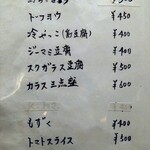 トーフヨウ ¥450
冷やっこ(島豆腐) ¥400
ジーマミ豆腐 ¥400
スクガラス豆腐 ¥500
カラス三点盛 ¥600
もずく ¥400
トマトスライス ¥500